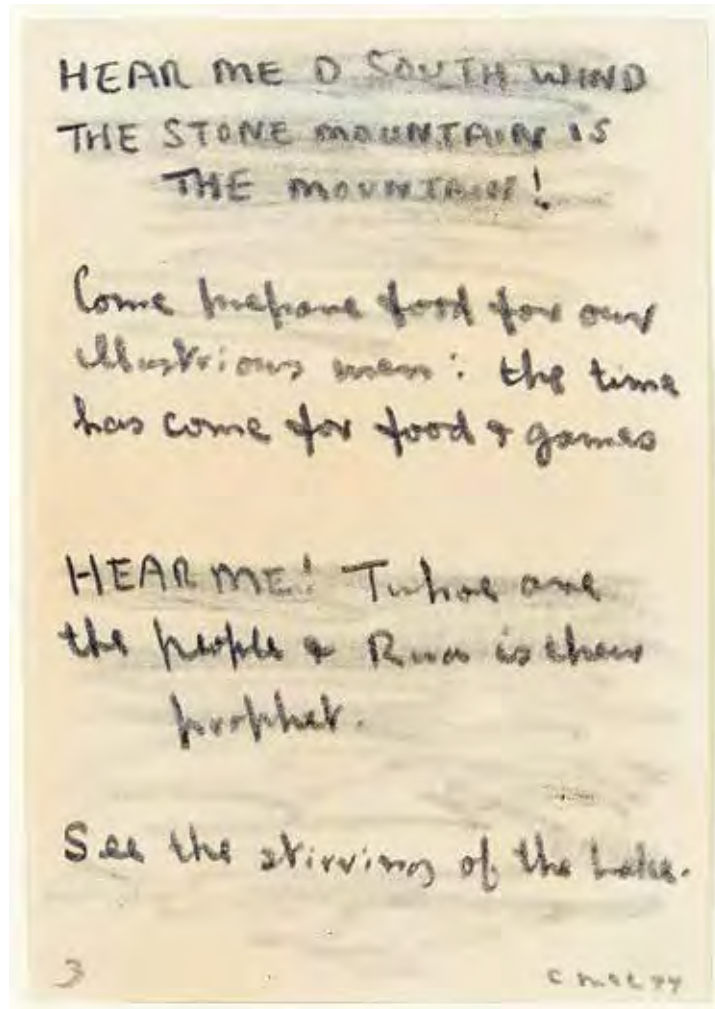 HEAR ME O SOUTH WIND
THE STONE MOUNTAIN IS
THE MOUNTAIN!
Come prepare food for our
illustrious men: the time
has come for food & games
HEAR ME! Tuhoe are
the people & Rua is their
prophet.
See the stirrings of the Lake.
3
C McC 77